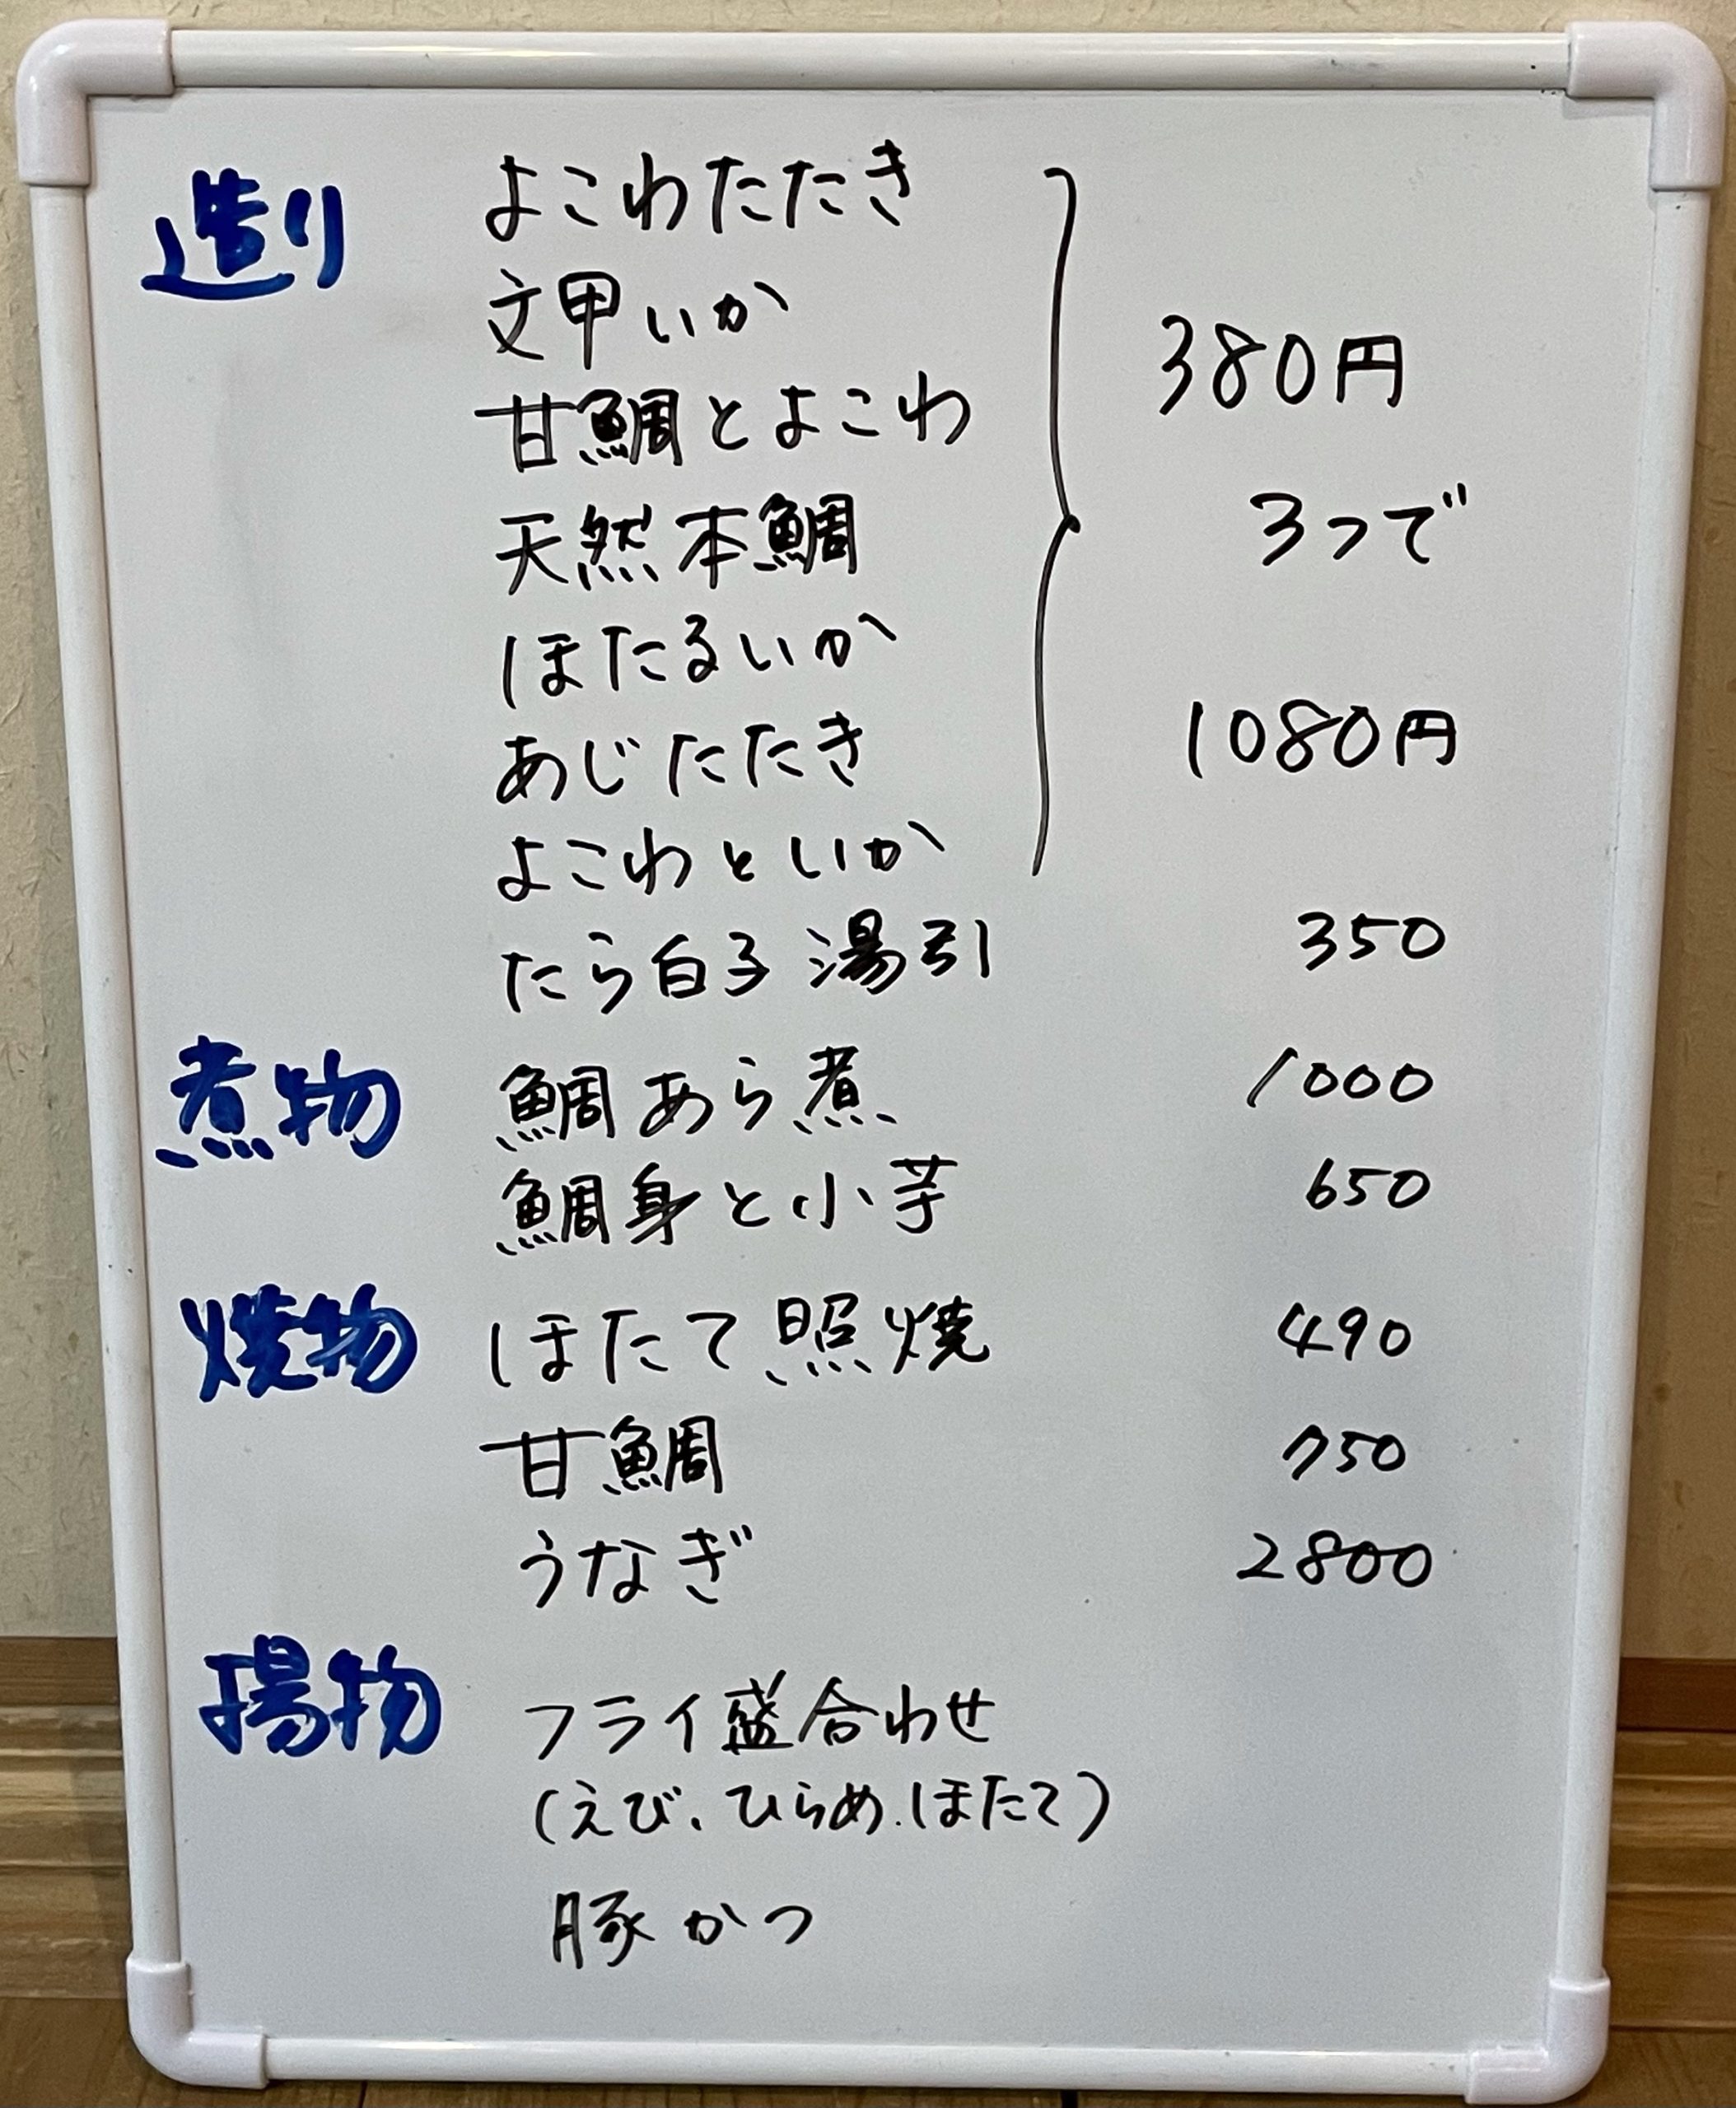 造り よこわたたき
文甲いか
甘鯛とよこわ
天然本鯛
ほたるいか
あじたたき
よこわといか
380円
3つで
1080円
たら白子湯引 350
煮物 鯛あら煮 1000
鯛身と小芋 650
焼物 ほたて照焼 490
甘鯛 750
うなぎ 2800
揚物 フライ盛合わせ
(えび、ひらめ、ほたて)
豚かつ